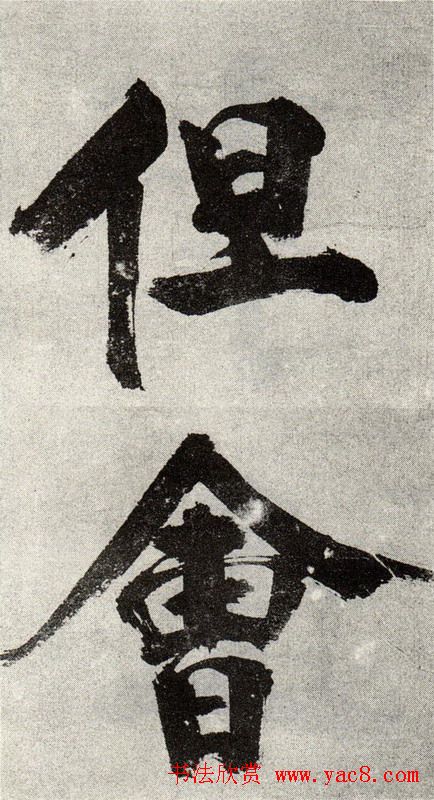 但
會
书法欣赏 www.yac8.com